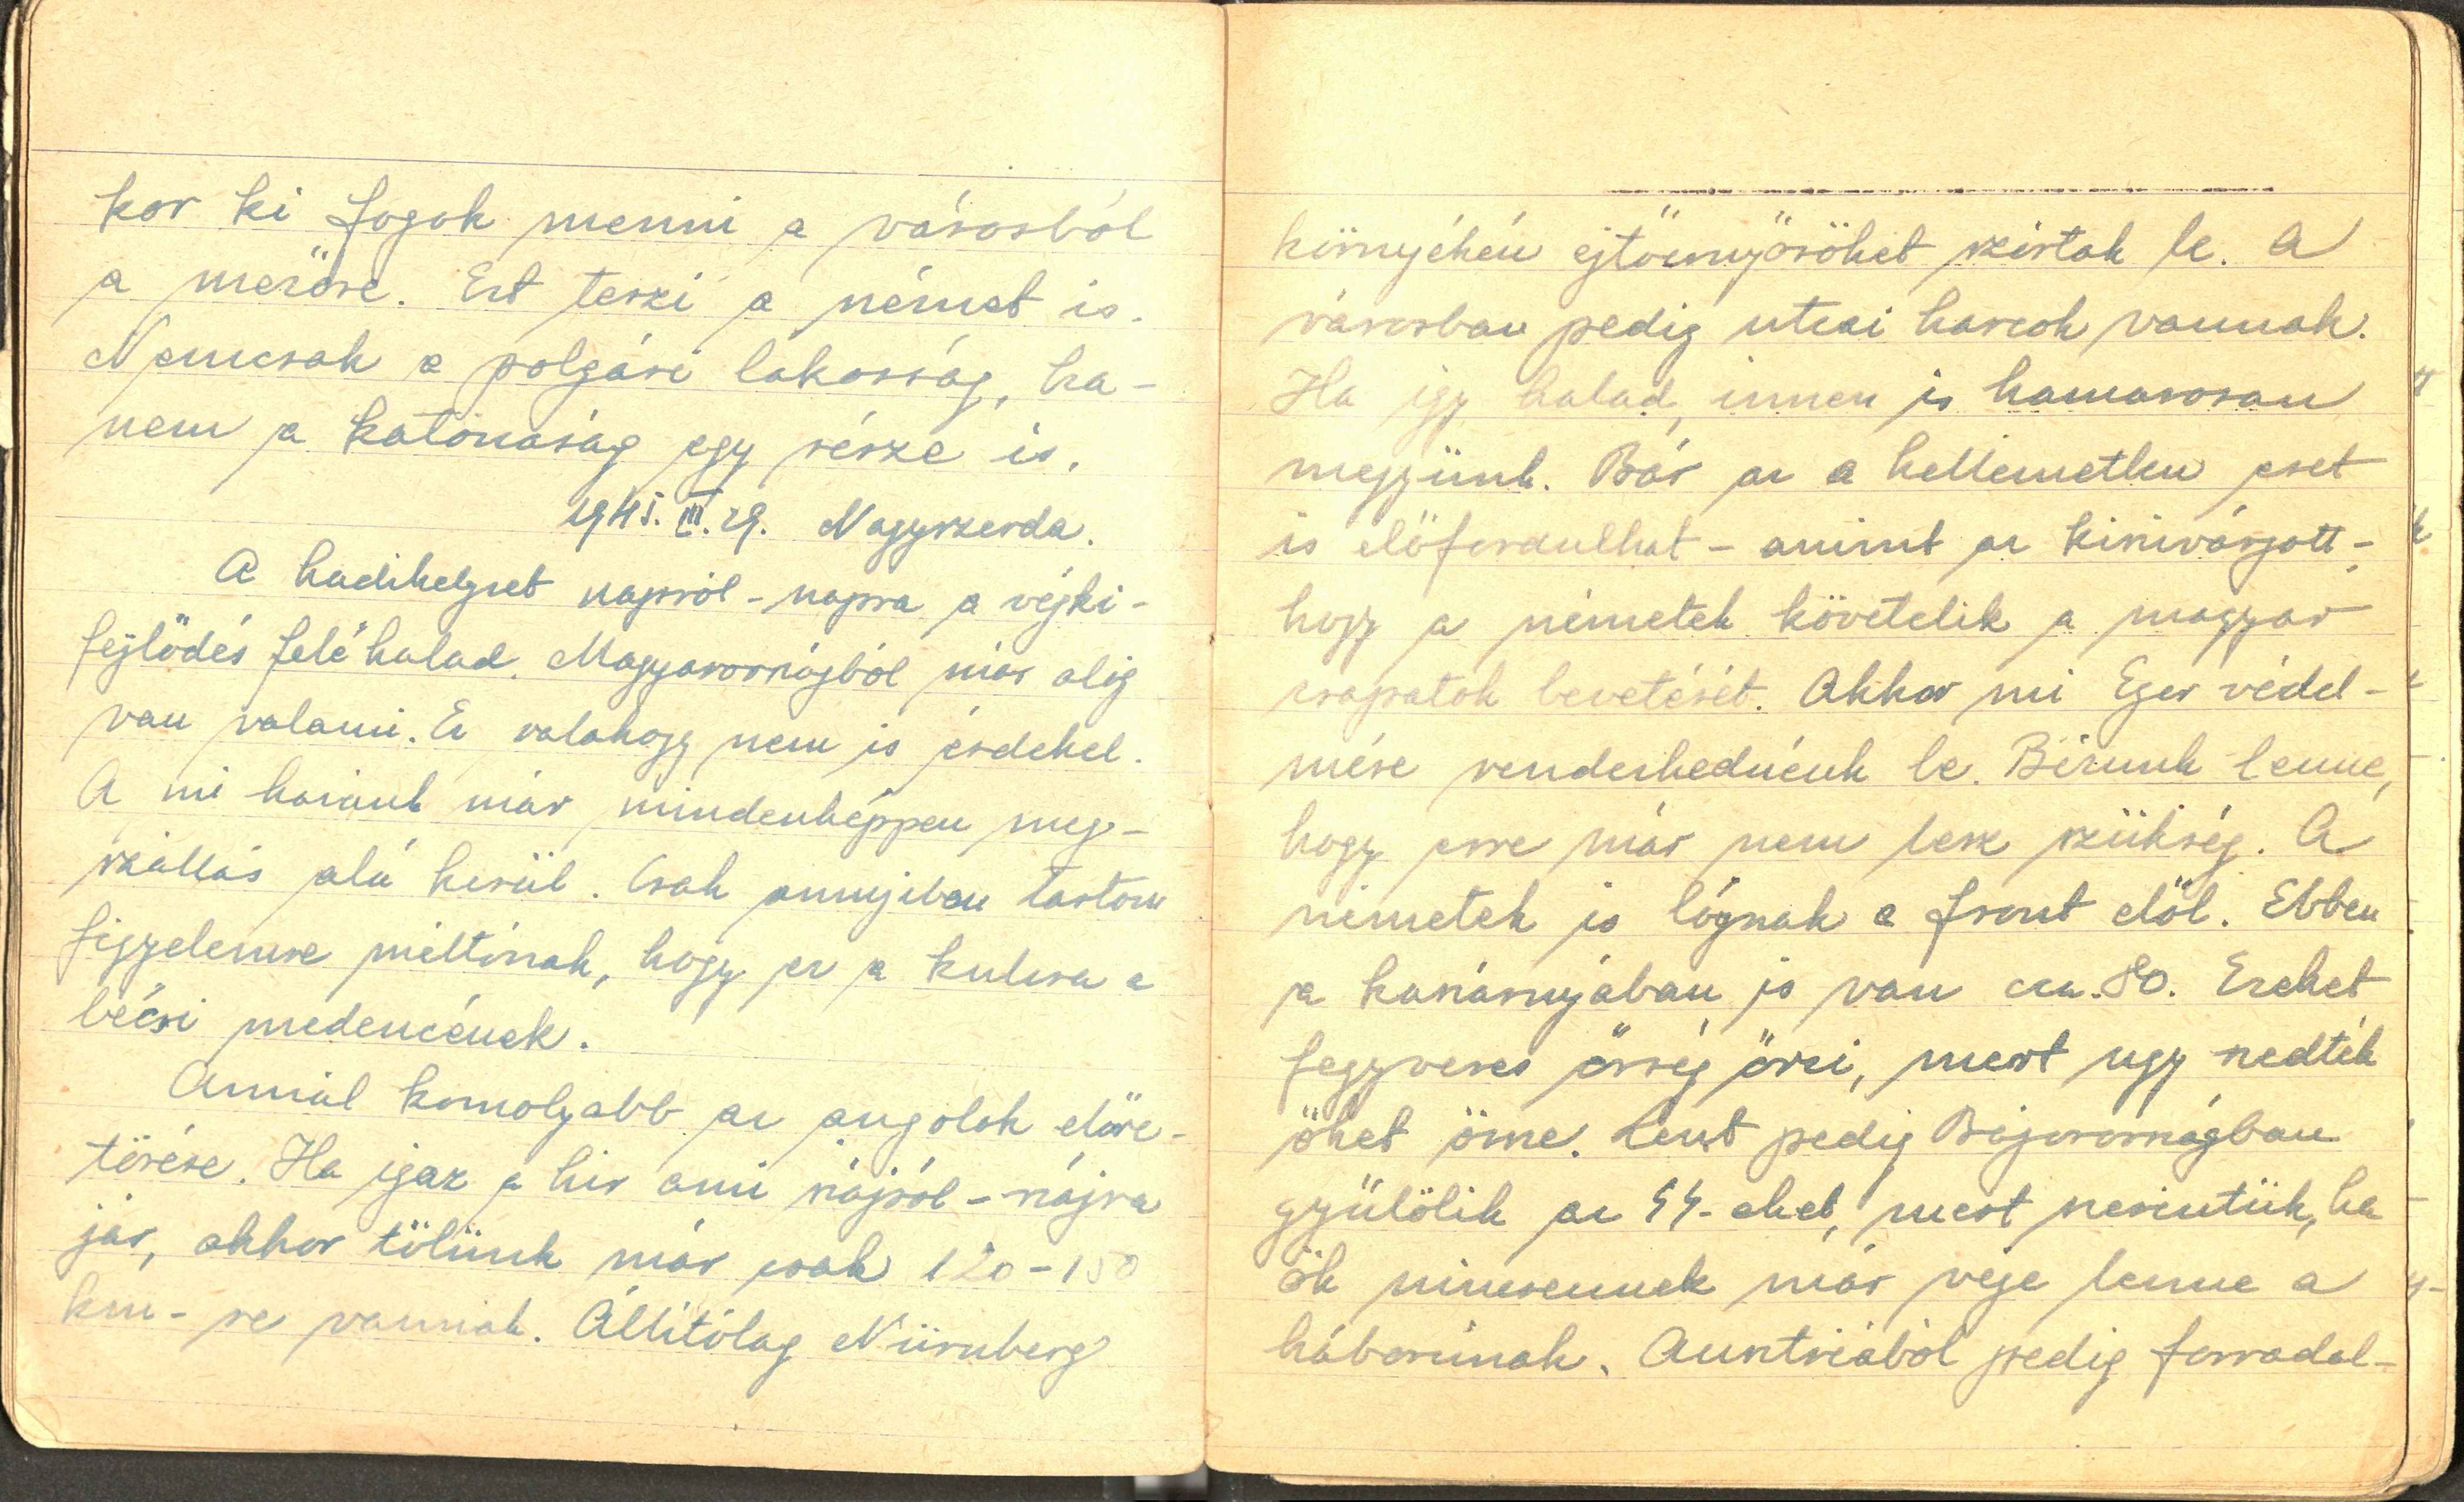 kor ki fogok menni a városból
a mezőre. Ezt teszi a német is.
Nemcsak a polgári lakosság, ha-
nem a katonaság egy része is.
1945. III. 29. Nagyszerda.
A hadihelyzet napról-napra a végki-
fejlődés felé halad. Magyarországból már alig
van valami. Ez valahogy nem is érdekel.
A mi hazánk már mindenképpen meg-
szállás alá kerül. Csak annyiban tartom
figyelemre méltónak, hogy ez a kulcsa a
bécsi medencének.
Annál komolyabb az angolok előre-
törése. Ha igaz a hir ami szájról-szájra
jár, akkor tőlünk már csak 120-150
km-re vannak. Állitólag Nürnberg
környékén ejtőernyősöket szórtak le. A
városban pedig utcai harcok vannak.
Ha igy halad, innen is hamarosan
megyünk. Bár az a kellemetlen eset
is előfordulhat - amint az kiszivárgott -,
hogy a németek követelik a magyar
csapatok bevetését. Akkor mi Eger védel-
mére rendelkednénk be. Biznunk lenne,
hogy erre már nem lesz szükség. A
németek is lógnak a front elől. Ebben
a kaszárnyában is van cca. 80. Ezeket
fegyveres őrség őrzi, mert ugy szedték
őket össze. Lent pedig Bajorországban
gyűlölik az SS-eket, mert szerintük, ha
ők nincsennek már vége lenne a
háborúnak. Ausztriából pedig forradal-